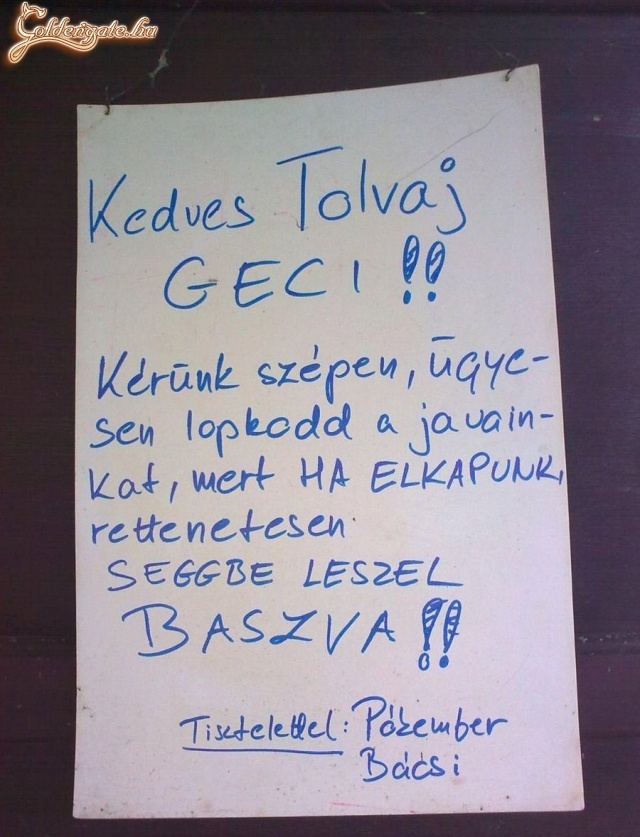 Goldengate.hu
Kedves Tolvaj
GECI !!
Kérünk szépen, ügye-
sen lopkodd a javain-
kat, mert HA ELKAPUNK,
rettenetesen
SEGGBE LESZEL
BASZVA !!
Tisztelettel: Pókember
Bácsi